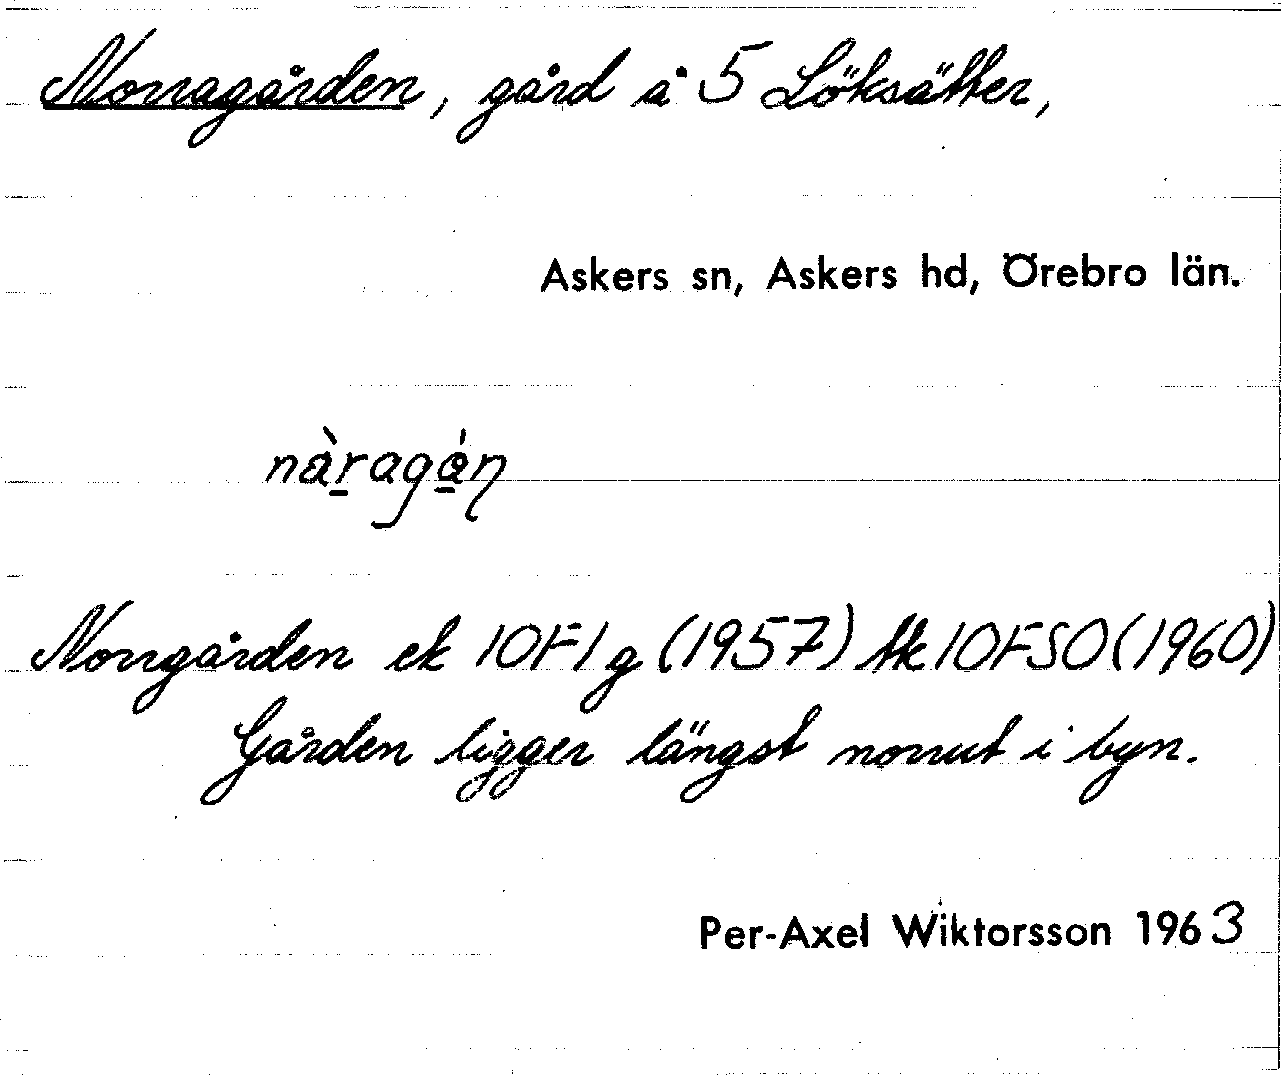 Norragården, gård å 5 Löksätter,
Askers sn, Askers hd, Örebro län.
nàragǻn
Norrgården ek 10F1g (1957) tk 10FSO (1960)
Gården ligger längst norrut i byn.
Per-Axel Wiktorsson 1963